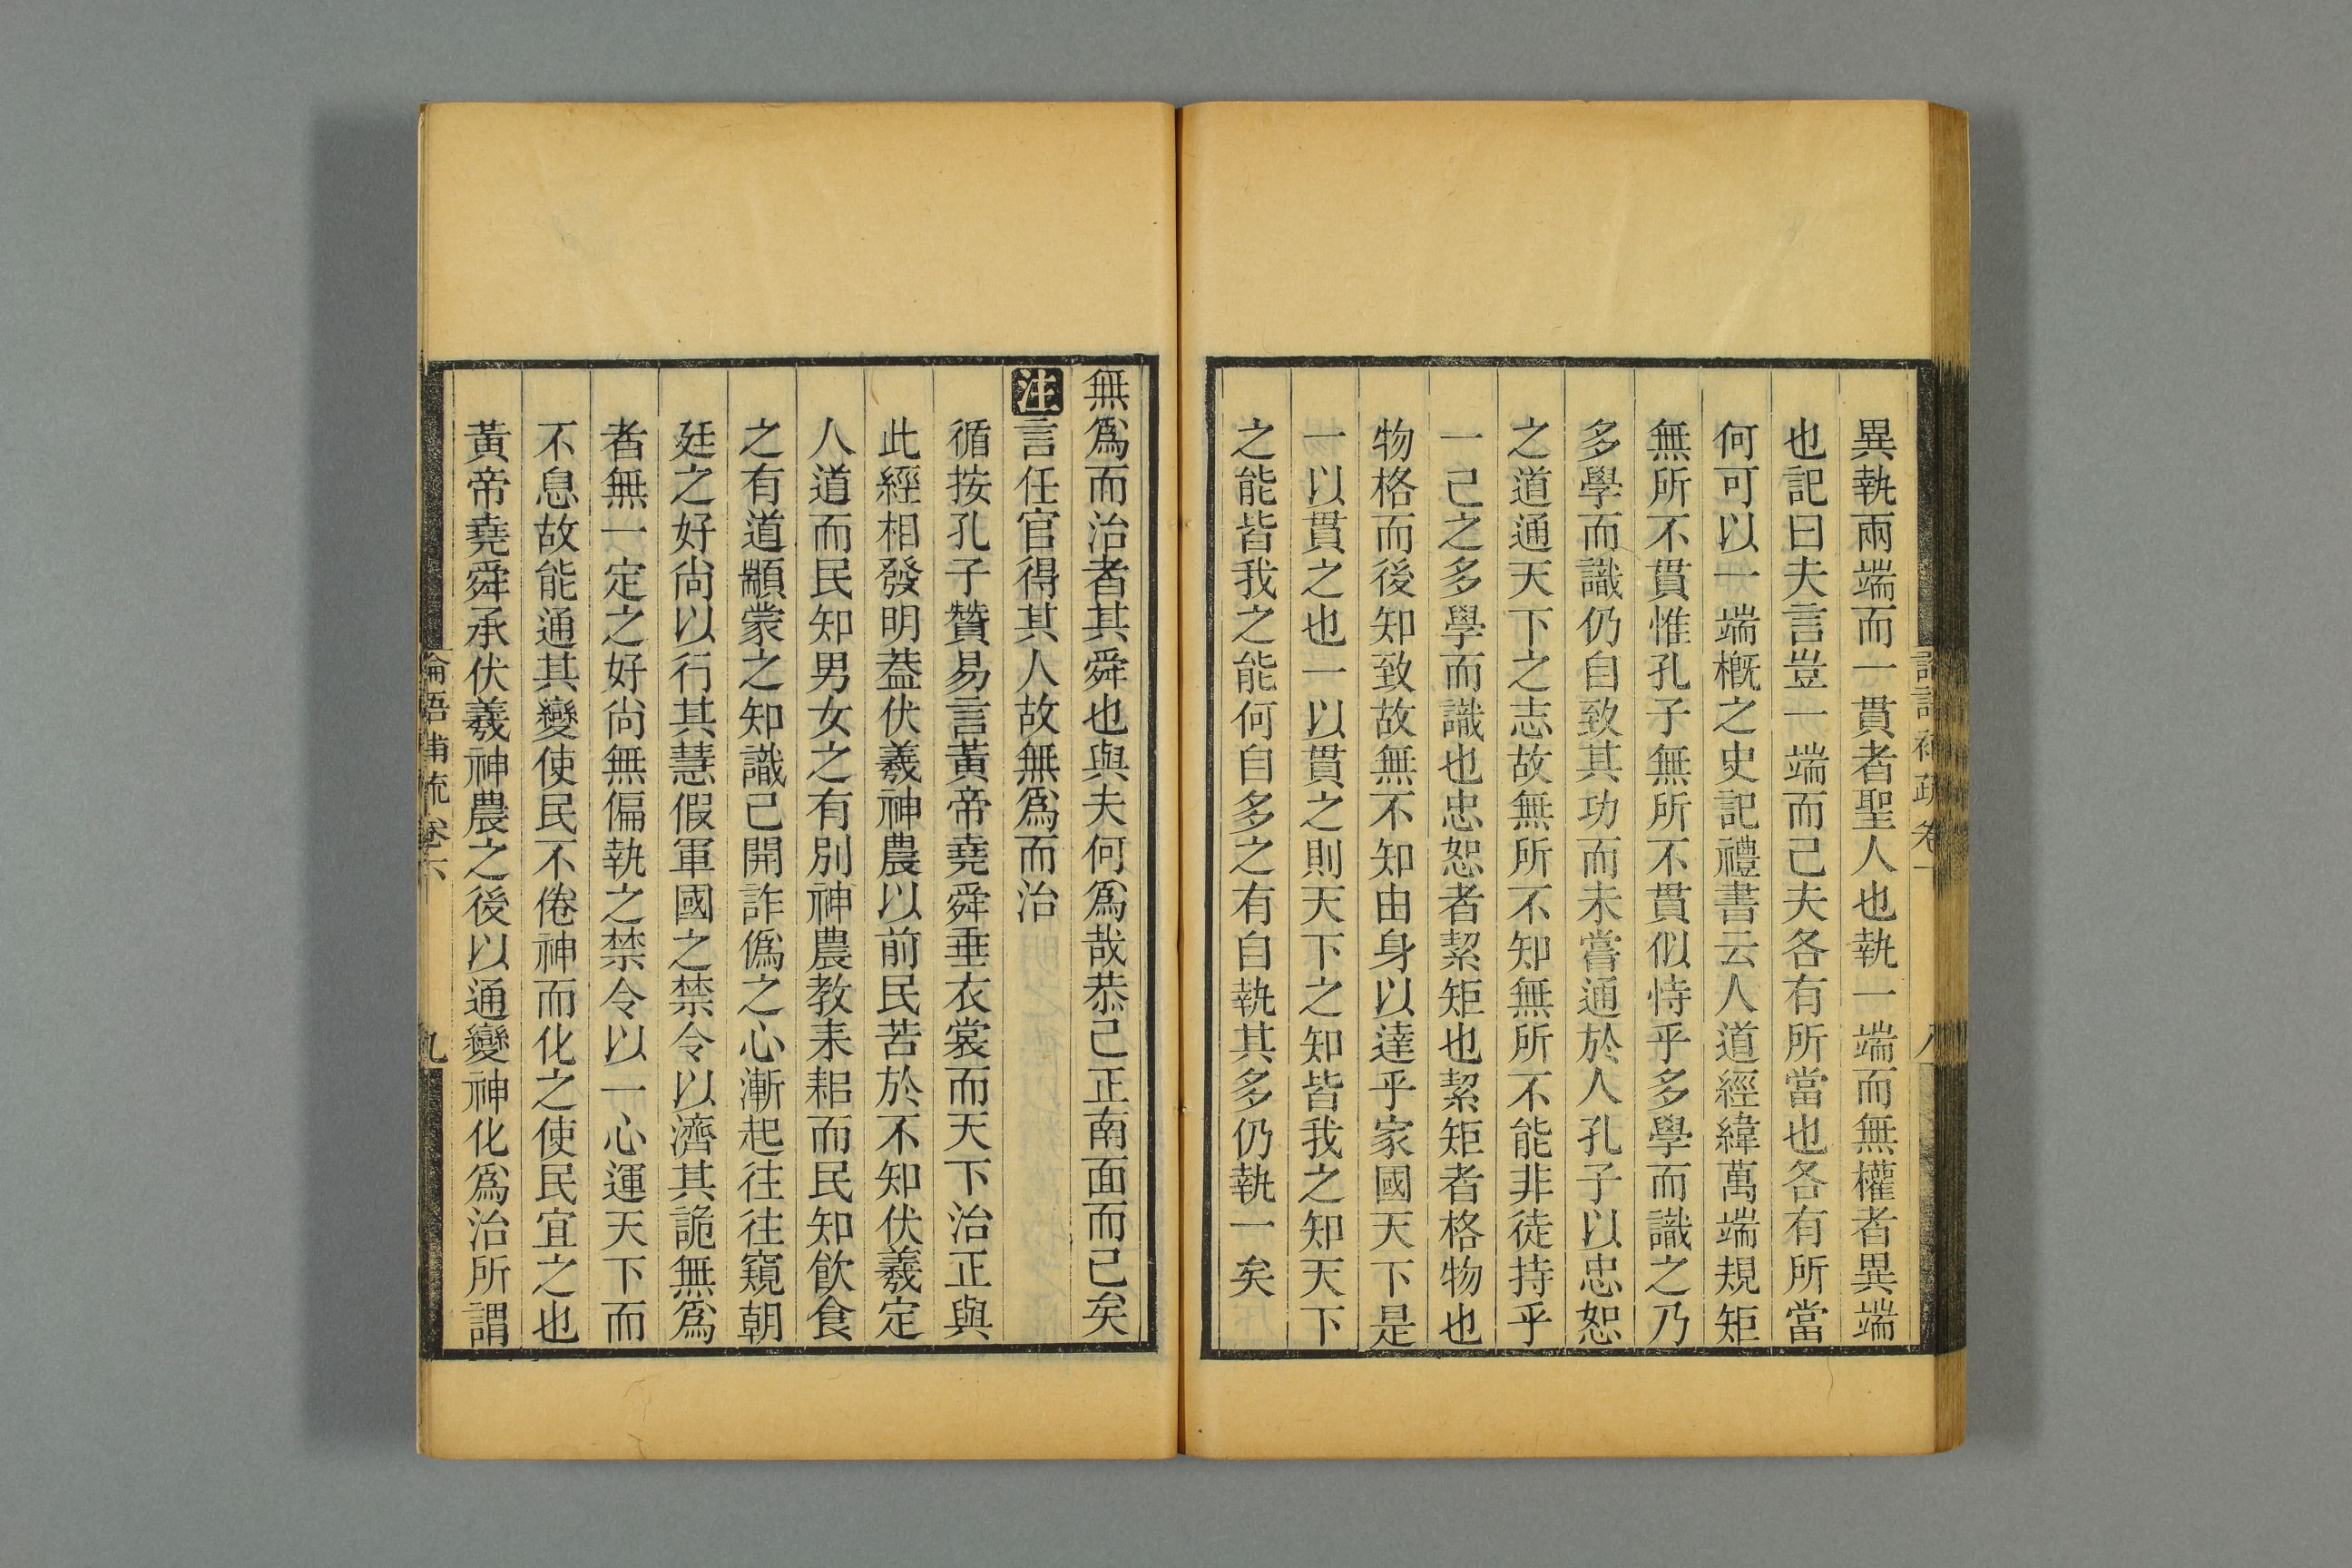 異執兩端而一貫者聖人也執一端而無權者異端
也記曰夫言豈一端而已夫各有所當也各有所當
何可以一端概之史記禮書云人道經緯萬端規矩
無所不貫惟孔子無所不貫似恃乎多學而識之乃
多學而識仍自致其功而未嘗通於人孔子以忠恕
之道通天下之志故無所不知無所不能非徒持乎
一己之多學而識也忠恕者絜矩也絜矩者格物也
物格而後知致故無不知由身以達乎家國天下是
一以貫之也一以貫之則天下之知皆我之知天下
之能皆我之能何自多之有自執其多仍執一矣
無爲而治者其舜也與夫何爲哉恭己正南面而已矣
注言任官得其人故無爲而治
循按孔子贊易言黃帝堯舜垂衣裳而天下治正與
此經相發明葢伏羲神農以前民苦於不知伏羲定
人道而民知男女之有別神農教耒耜而民知飲食
之有道顓蒙之知識已開詐僞之心漸起往往窺朝
廷之好尚以行其慧假軍國之禁令以濟其詭無爲
者無一定之好尚無偏執之禁令以一心運天下而
不息故能通其變使民不倦神而化之使民宜之也
黃帝堯舜承伏羲神農之後以通變神化爲治所謂
論語補疏卷六 九